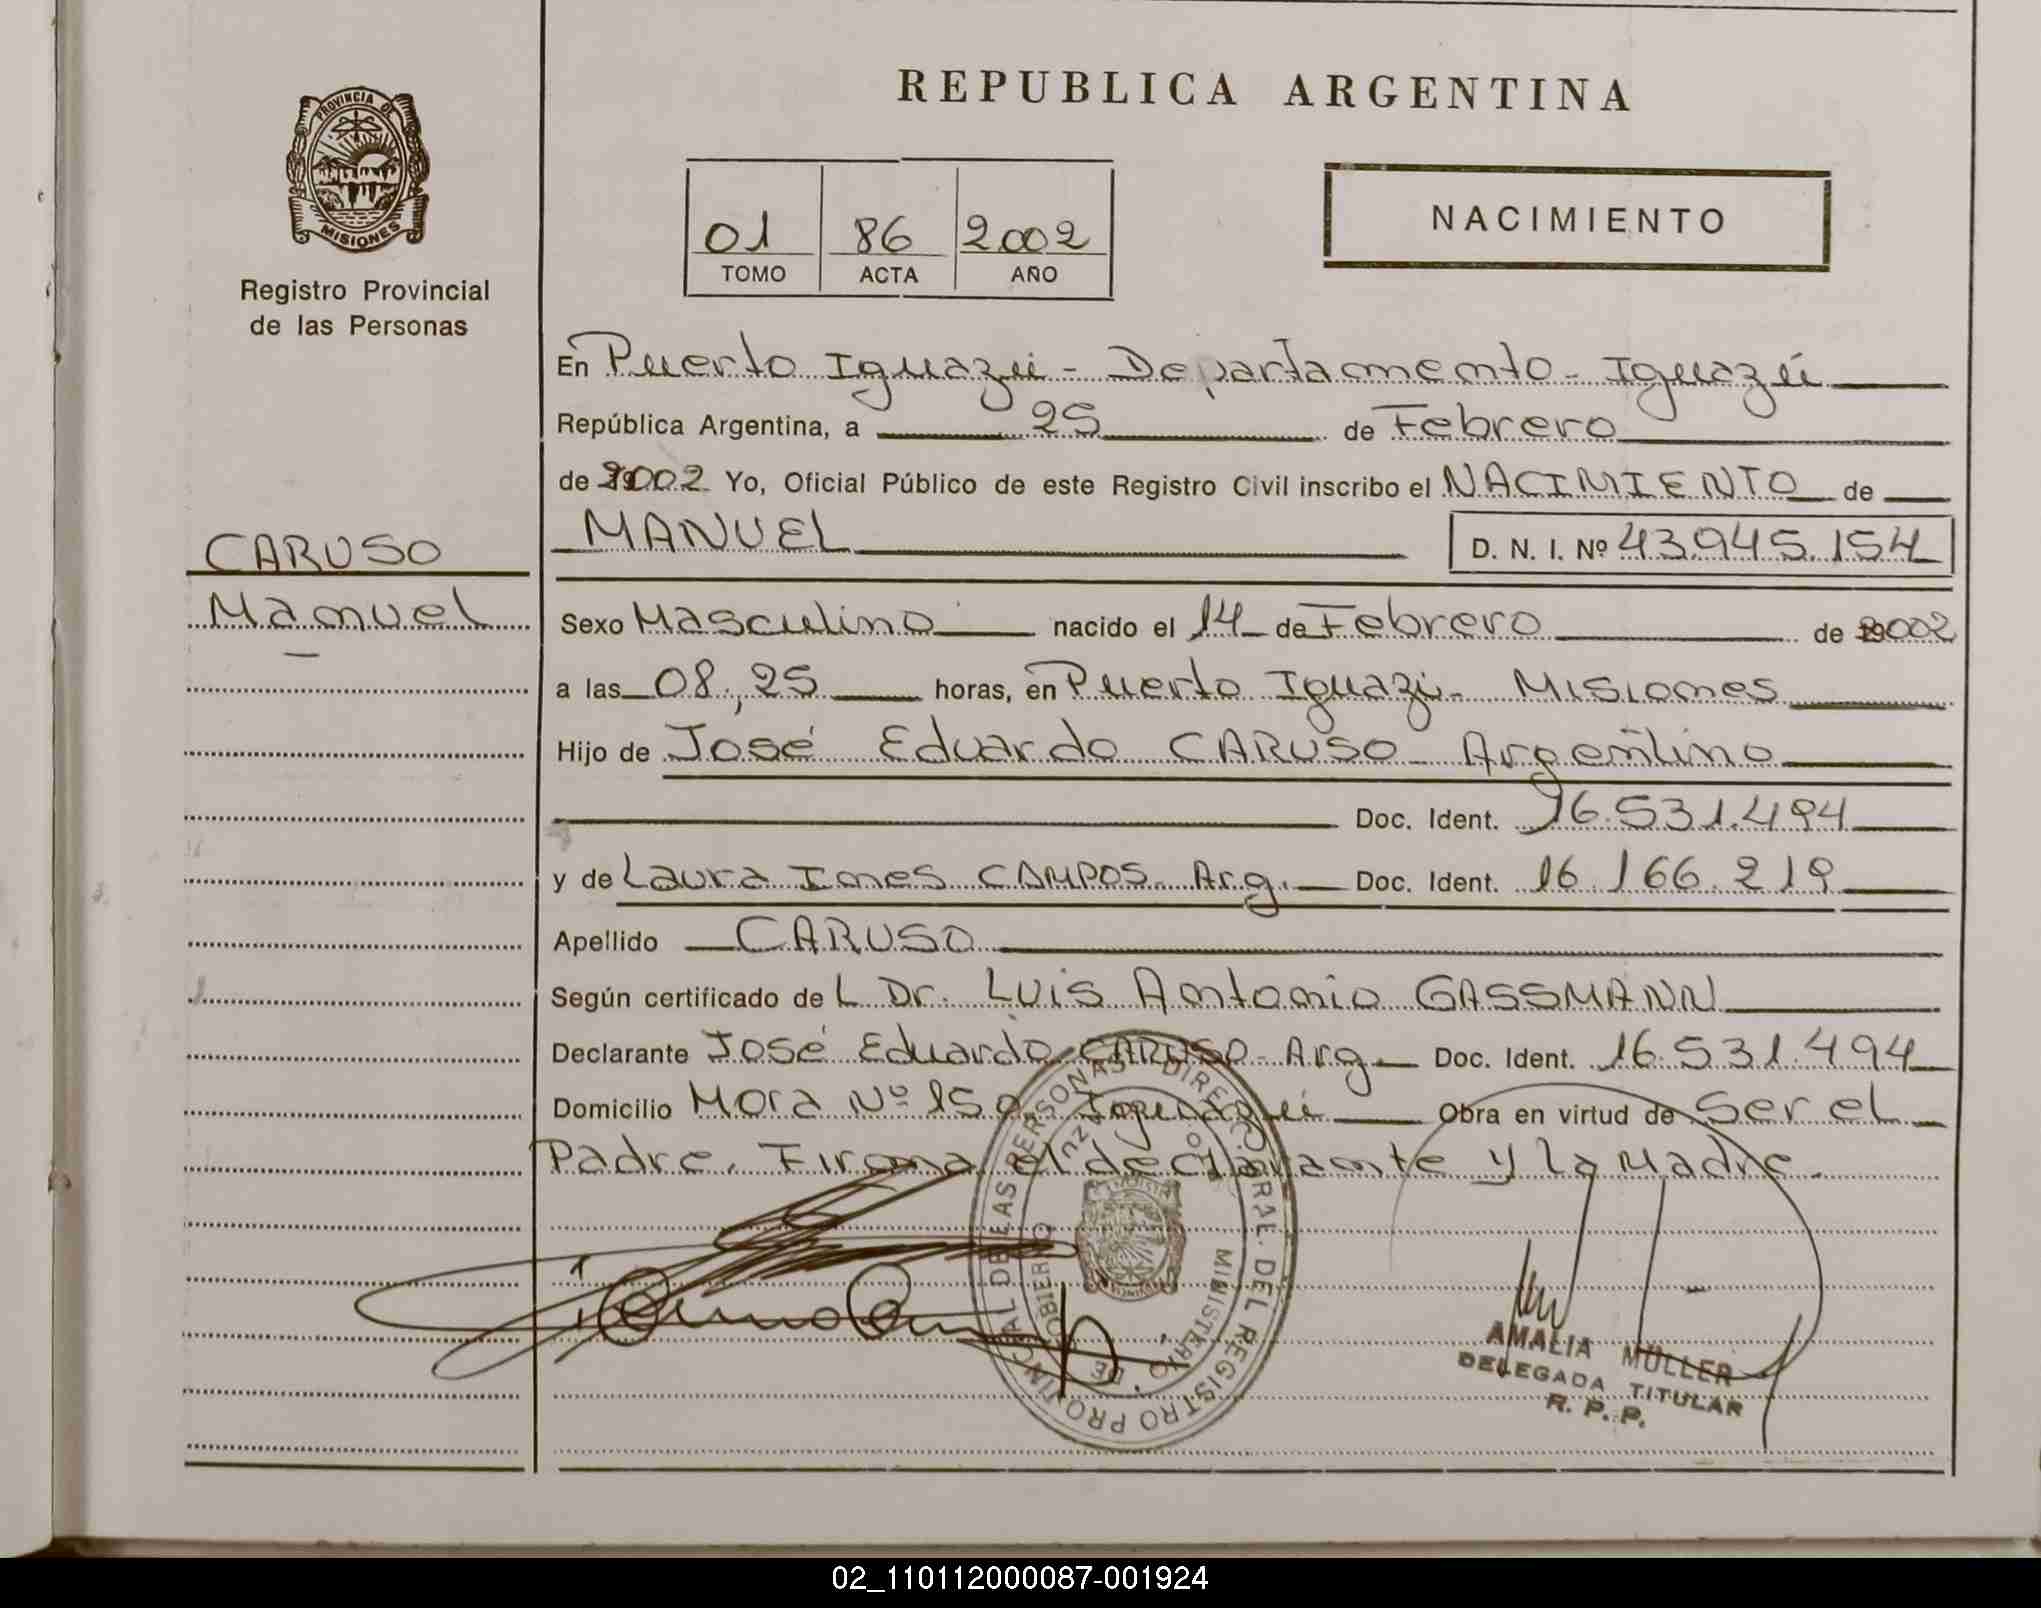 REPUBLICA ARGENTINA
PROVINCIA DE
MISIONES
Registro Provincial
de las Personas
01 86 2002
TOMO ACTA AÑO
NACIMIENTO
En Puerto Iguazú - Departamento - Iguazú
República Argentina, a 25 de Febrero
de 2002 Yo, Oficial Público de este Registro Civil inscribo el NACIMIENTO de
MANUEL D. N. I. Nº 43.945.154
CARUSO
Manuel
Sexo Masculino nacido el 14 de Febrero de 2002
a las 08,25 horas, en Puerto Iguazú - Misiones
Hijo de José Eduardo CARUSO Argentino
Doc. Ident. 16.531.494
y de Laura Ines CAMPOS Arg. Doc. Ident. 16.166.219
Apellido CARUSO
Según certificado de L Dr. Luis Antonio GASSMANN
Declarante José Eduardo CARUSO - Arg Doc. Ident. 16.531.494
Domicilio Mora Nº Iguazú Obra en virtud de Ser el
Padre. Firma el declarante y la Madre.
PROVINCIAL DE LAS PERSONAS
DEL REGISTRO
MINISTERIO DE GOBIERNO
AMALIA MÜLLER
DELEGADA TITULAR
R. P. P.
02_110112000087-001924